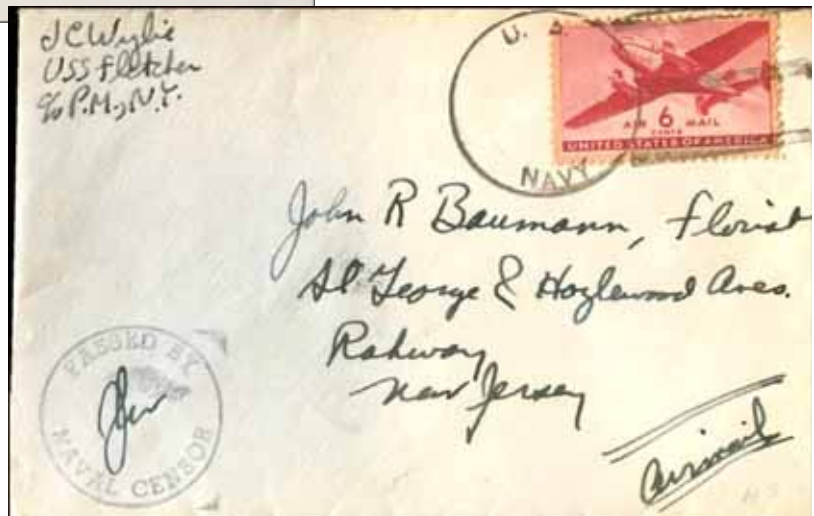 J C Wylie
USS Fletcher
c/o P.M., N.Y.
U. S.
NAVY
AIR 6 MAIL
CENTS
UNITED STATES OF AMERICA
John R Baumann, Florist
St George & Hazlewood Aves.
Rahway
New Jersey
Airmail
PASSED BY
NAVAL CENSOR